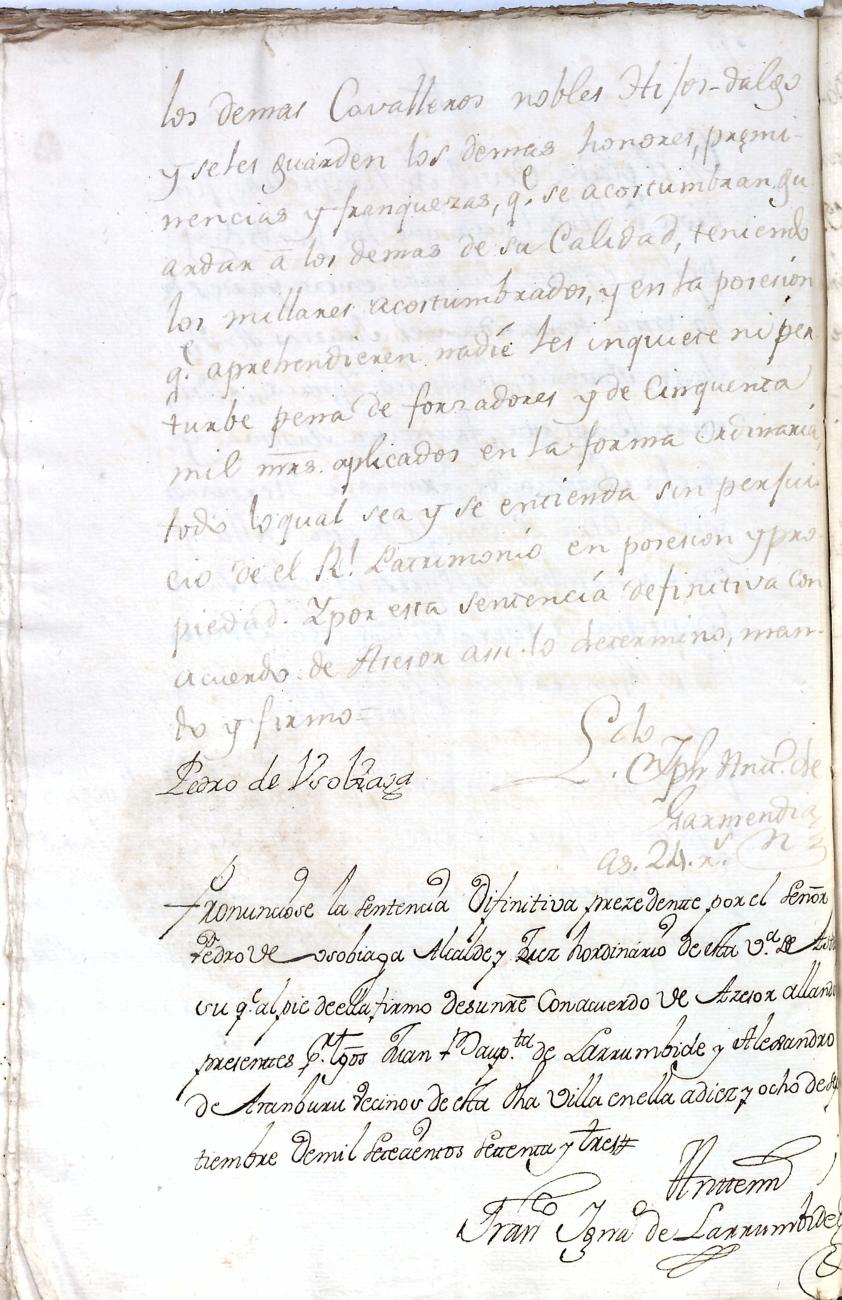 los demas Cavalleros nobles Hijos-dalgo
y seles guarden los demas honores, premi-
nencias y franquezas, q.e se acostumbran gu
ardar à los demas de su Calidad, teniendo
los millares acostumbrados, y en la posesion
q.e aprehendieren nadie les inquiete ni per
turbe pena de forzadores y de Cinquenta
mil mrs. aplicados en la forma Ordinaria,
todo loqual sea y se entienda sin perjui-
cio de el R.l Patrimonio en posesion y pro-
piedad. Ypor esta sentencia definitiva con
acuerdo de Asesor assi lo determino, man-
do y firmo=
Pedro de Vsobiaga
Lcdo
Jph Ant.o de
Garmendia
as. 24. r.s
Pronunciose la sentencia Difinitiva prezedente por el señor
Pedro de Vsobiaga Alcalde y Juez hordinario de esta V.a de
su q.e al pie de ella firmo desunre Conacuerdo de Asesor
presentes p.r tgos Juan Bap.ta de Larrumbide y Alexandro
de Aranburu vecinos de esta dha villa en ella a diez y ocho de se
tiembre de mil setecientos setenta y tres
Anttemi
Fran.co Ign.o de Larrumbide